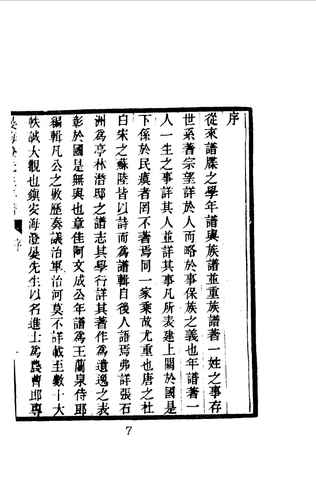 序
從來譜牒之學年譜與族譜並重族譜著一姓之事存
世系著宗望詳於人而略於事保族之義也年譜著一
人一生之事詳其人並詳其事凡所表建上關於國是
下係於民瘼者罔不著焉同一家乘故尤重也唐之杜
白宋之蘇陸皆以詩而為譜輯自後人語焉弗詳張石
洲為亭林潛邱之譜志其學行詳其著作為遺逸之表
彰於國是無與也章佳阿文成公年譜為王蘭泉侍郎
編輯凡公之敭歷奏議治軍治河莫不詳載至數十大
帙誠大觀也鎮安海澄晏先生以名進士為農曹郎專
序
7